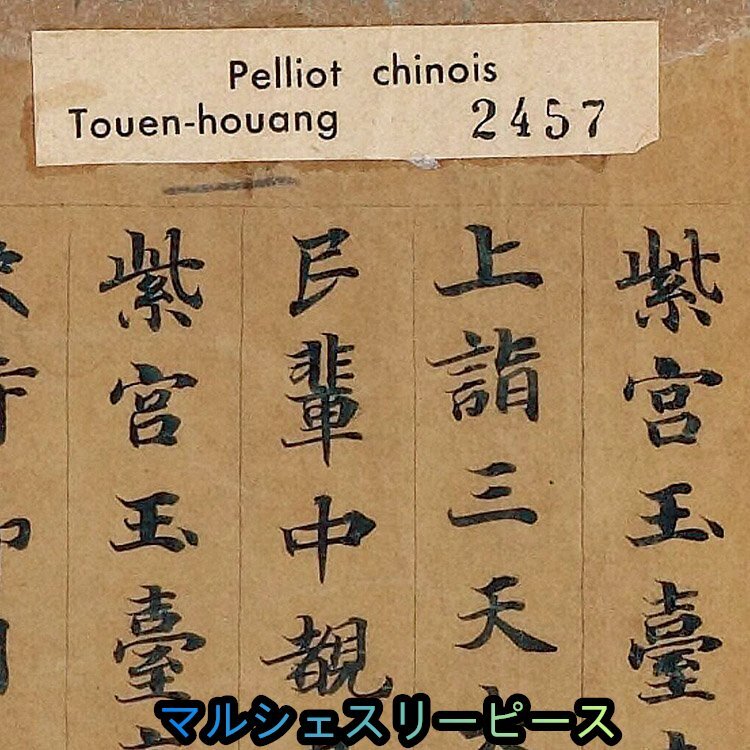 Pelliot chinois
Touen-houang 2457
紫宮玉臺
上詣三天
輩中覩
紫宮玉臺
マルシェスリーピース